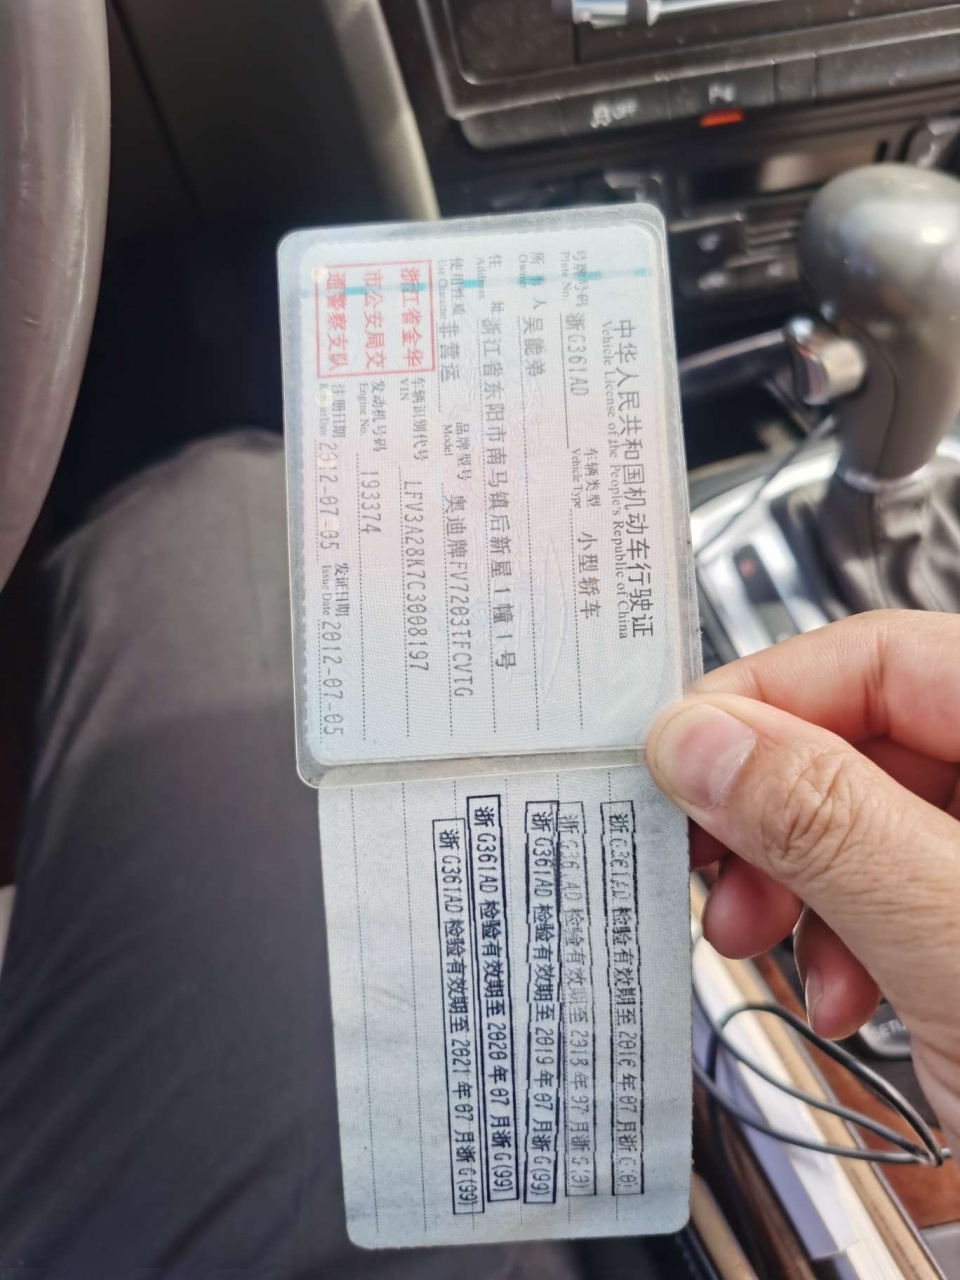 中华人民共和国机动车行驶证
Vehicle License of the People's Republic of China
号牌号码 浙G361AD 车辆类型 小型轿车
Plate No. Vehicle Type
所有人 吴能弟
Owner
住址 浙江省东阳市南马镇后新屋1幢1号
Address
使用性质 非营运 品牌型号 奥迪牌FV7203TFCVTG
Use Character Model
浙江省金华
市公安局交
通警察支队
车辆识别代号 LFV3A28K7C3008197
VIN
发动机号码 193374
Engine No.
注册日期 2012-07-05 发证日期 2012-07-05
Register Date Issue Date
浙G361AD 检验有效期至2016年07月浙G(0)
浙G361AD 检验有效期至2018年07月浙G(9)
浙G361AD 检验有效期至2019年07月浙G(99)
浙G361AD 检验有效期至2020年07月浙G(99)
浙G361AD 检验有效期至2021年07月浙G(99)
OFF